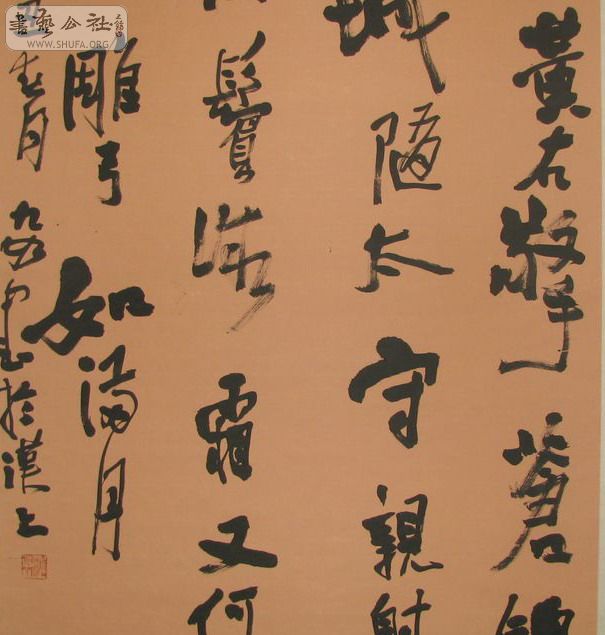 黃右擎蒼錦
城隨太守親射
鬢微霜又何
雕弓如滿月
春月 於漢上
書藝公社
WWW.SHUFA.ORG